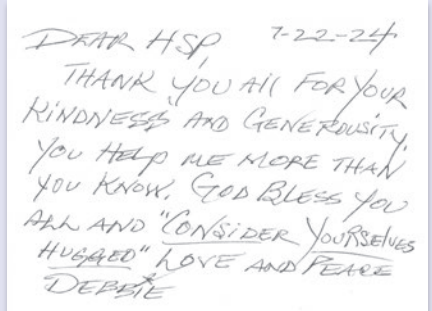 DEAR HSP, 7-22-24
THANK YOU All FOR YOUR
KINDNESS AND GENEROUSITY.
YOU HELP ME MORE THAN
YOU KNOW. GOD BLESS YOU
ALL AND "CONSIDER YOURSELVES
HUGGED" LOVE AND PEACE
DEBBIE